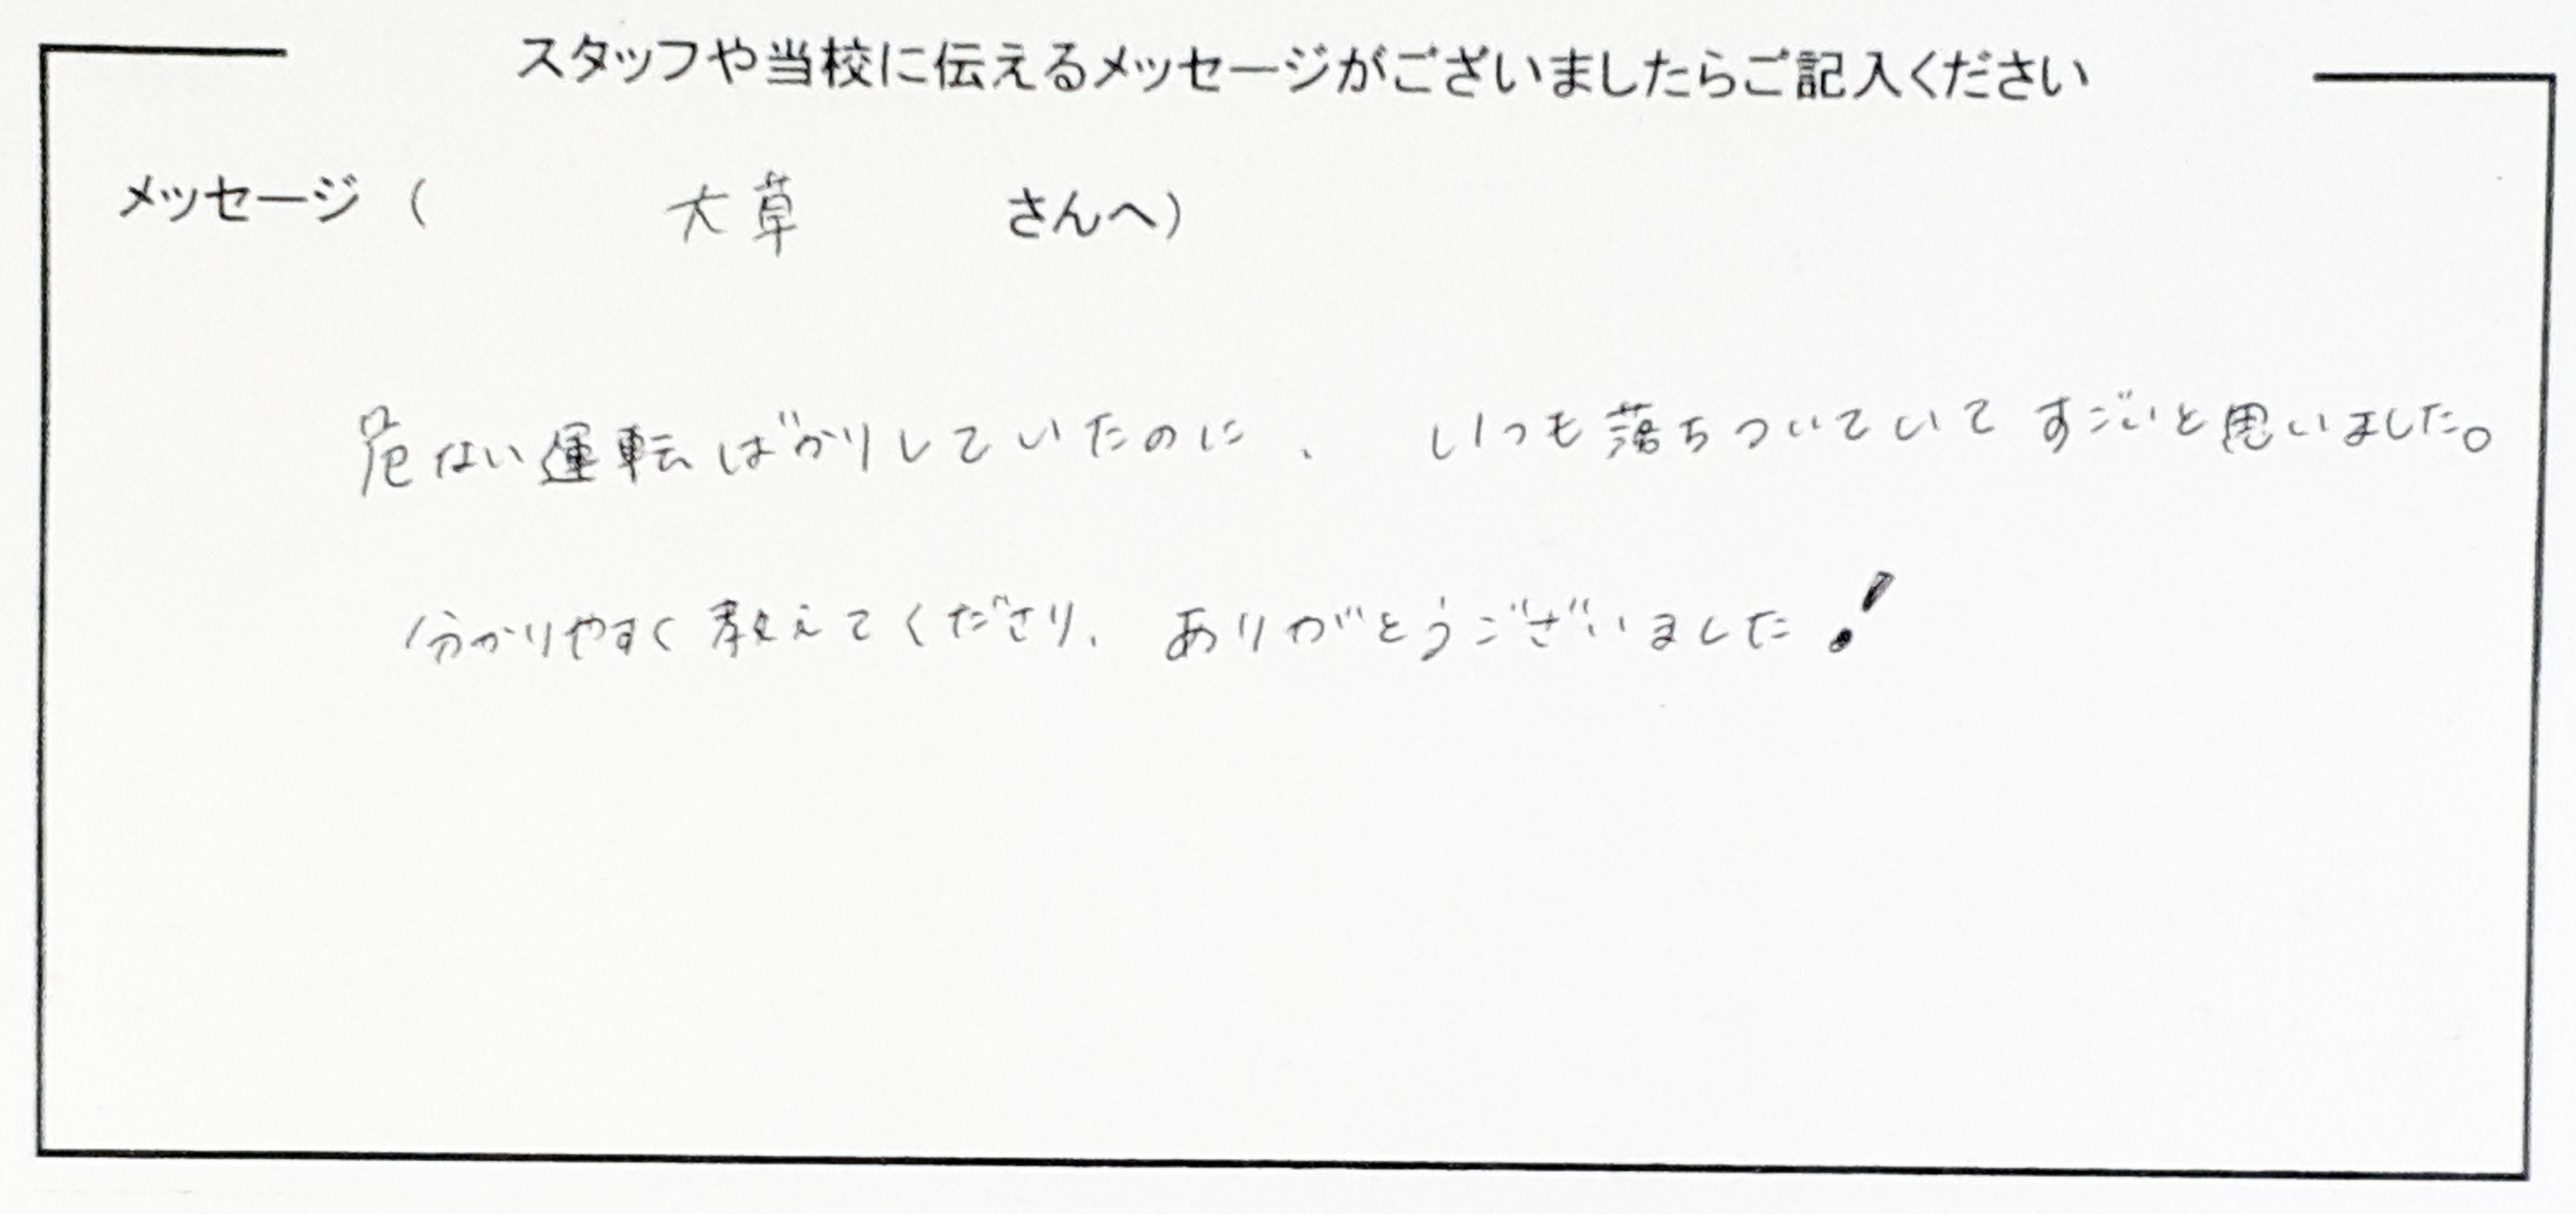 スタッフや当校に伝えるメッセージがございましたらご記入ください
メッセージ（ 大草 さんへ）
危ない運転ばかりしていたのに、いつも落ちついていてすごいと思いました。
分かりやすく教えてくださり、ありがとうございました！